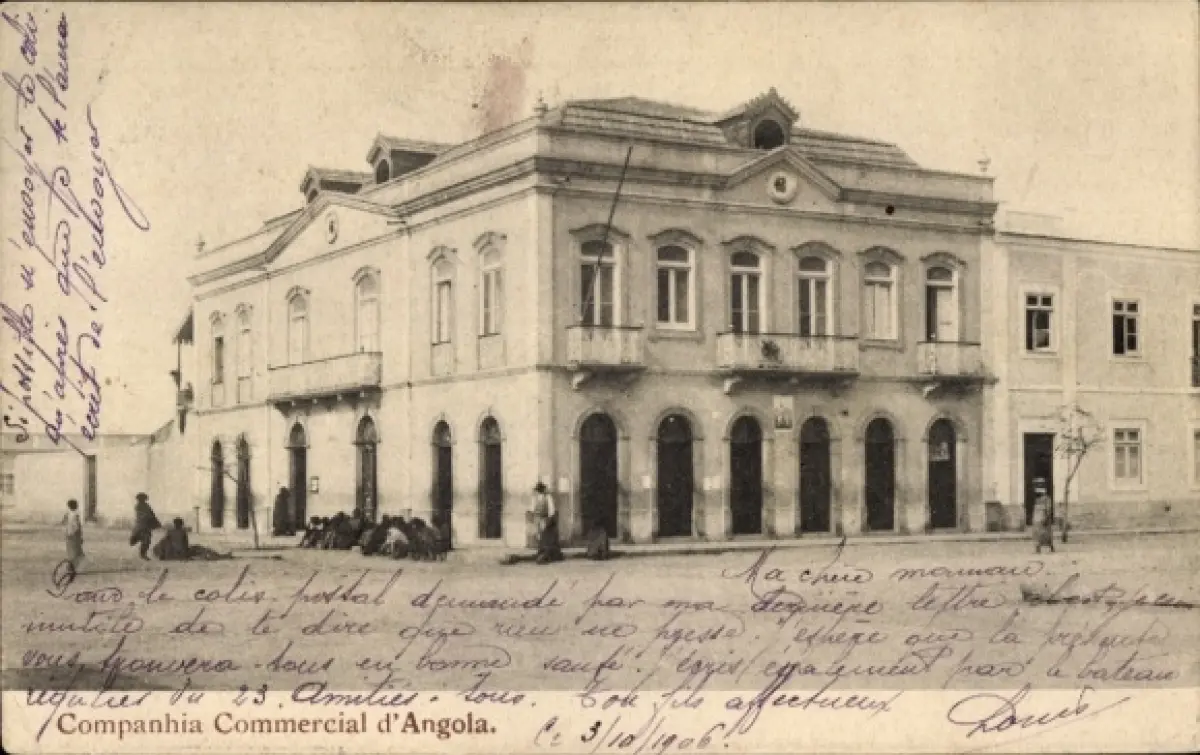 Si possible n'envoyer le colis
qu'après que je te l'aurai
écrit de l'envoyer
Ma chère maman
Pour le colis postal demandé par ma dernière lettre
inutile de te dire que rien ne presse. J'espère que la présente
vous trouvera tous en bonne santé. J'écris également par bateau
régulier du 23. Amitiés tous. Ton fils affectueux
Louis
Companhia Commercial d'Angola.
3/10/1906